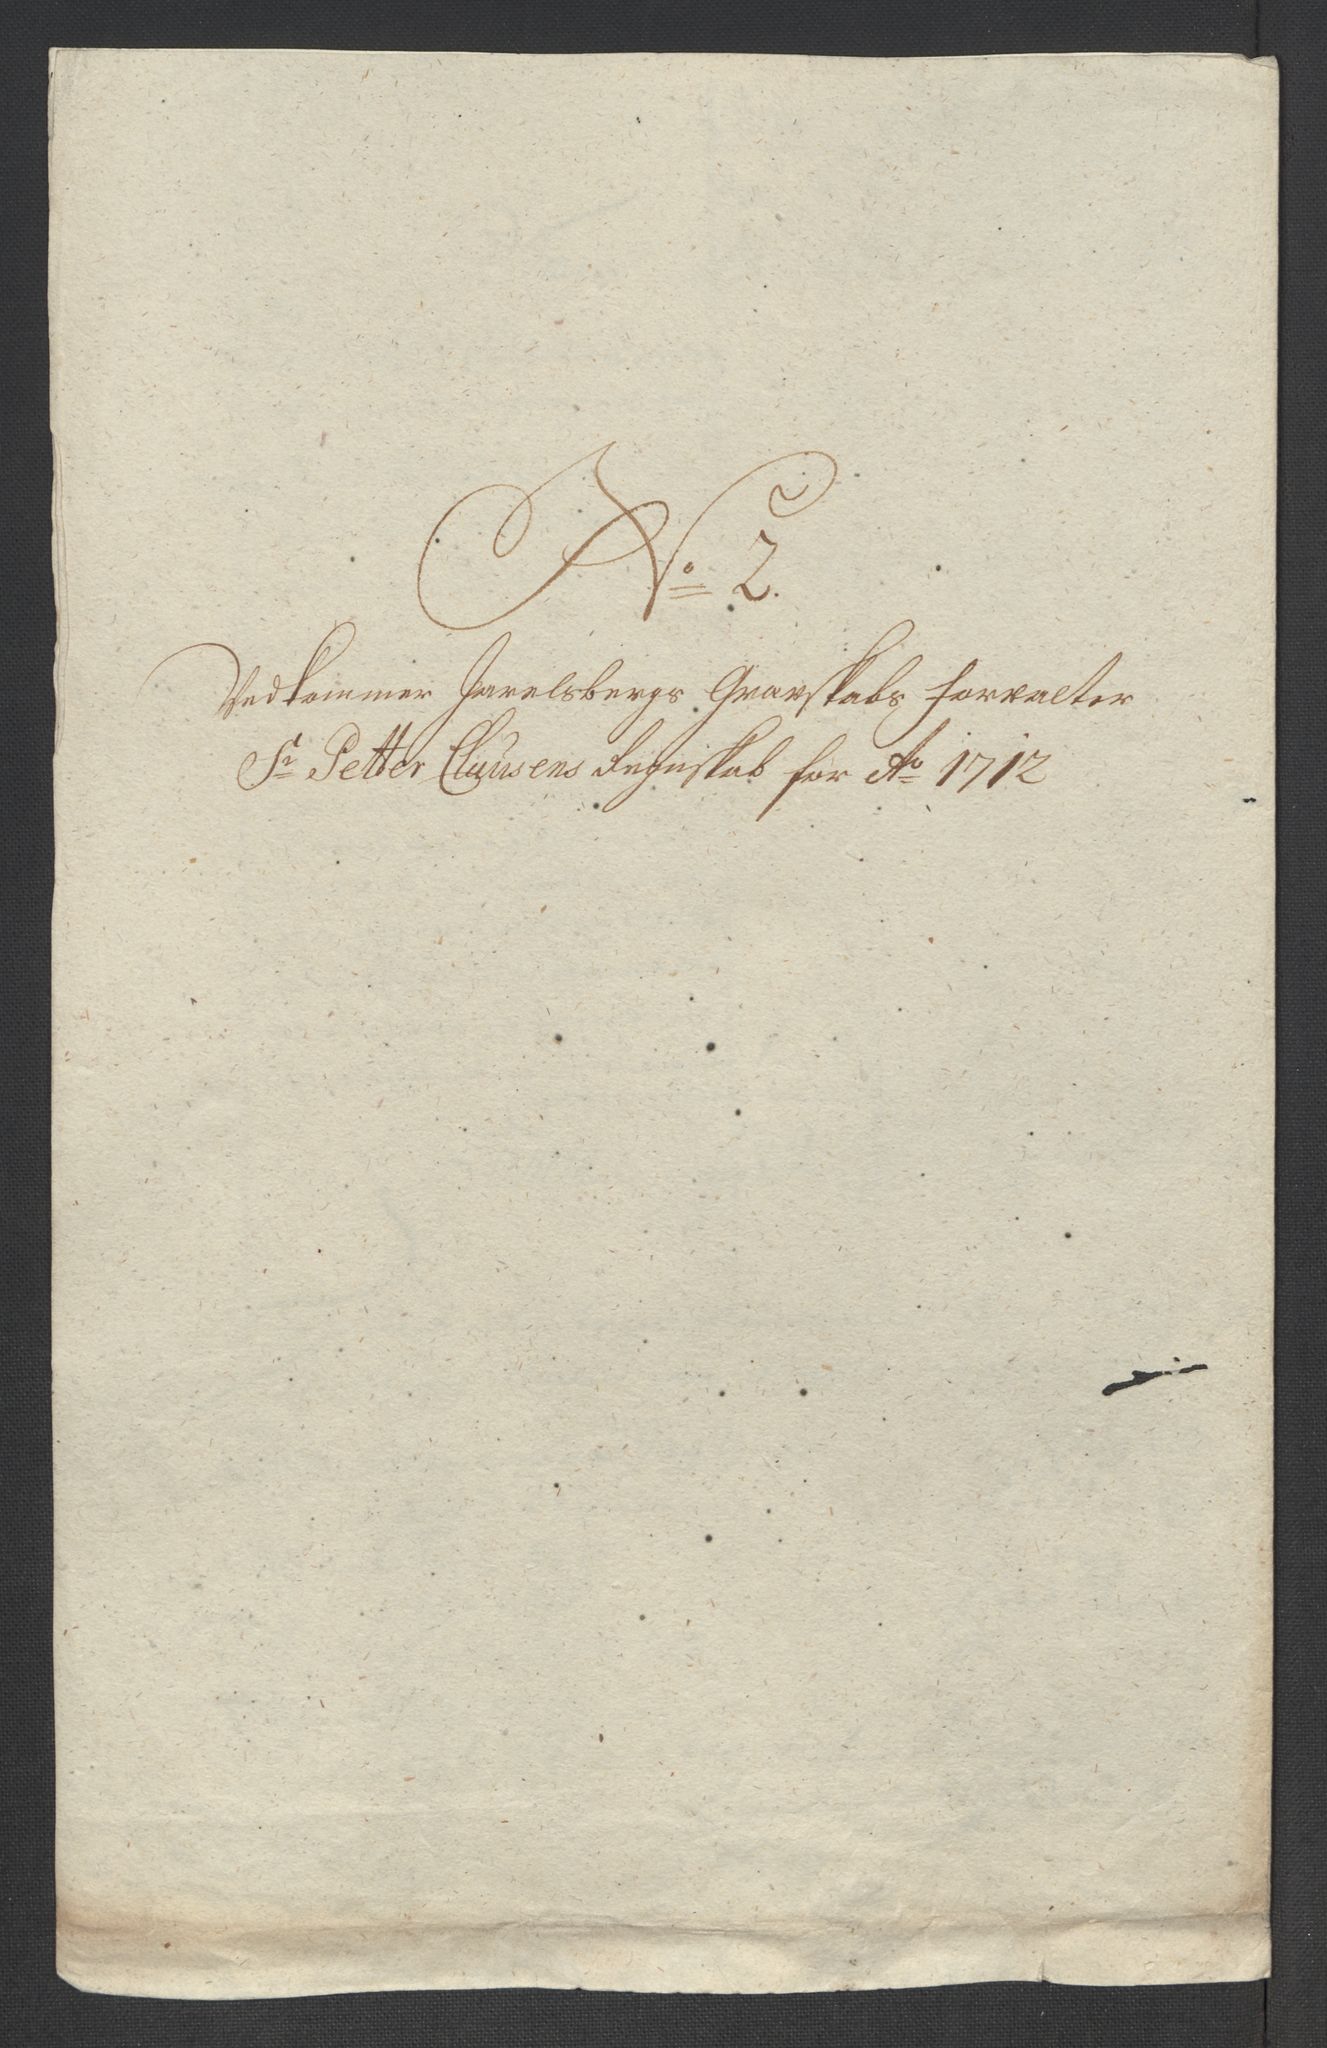 No 2.
Vedkommer Jarelsbergs Gravskabs forvalter
Sr Petter Clausens Regnskab for Ao 1712